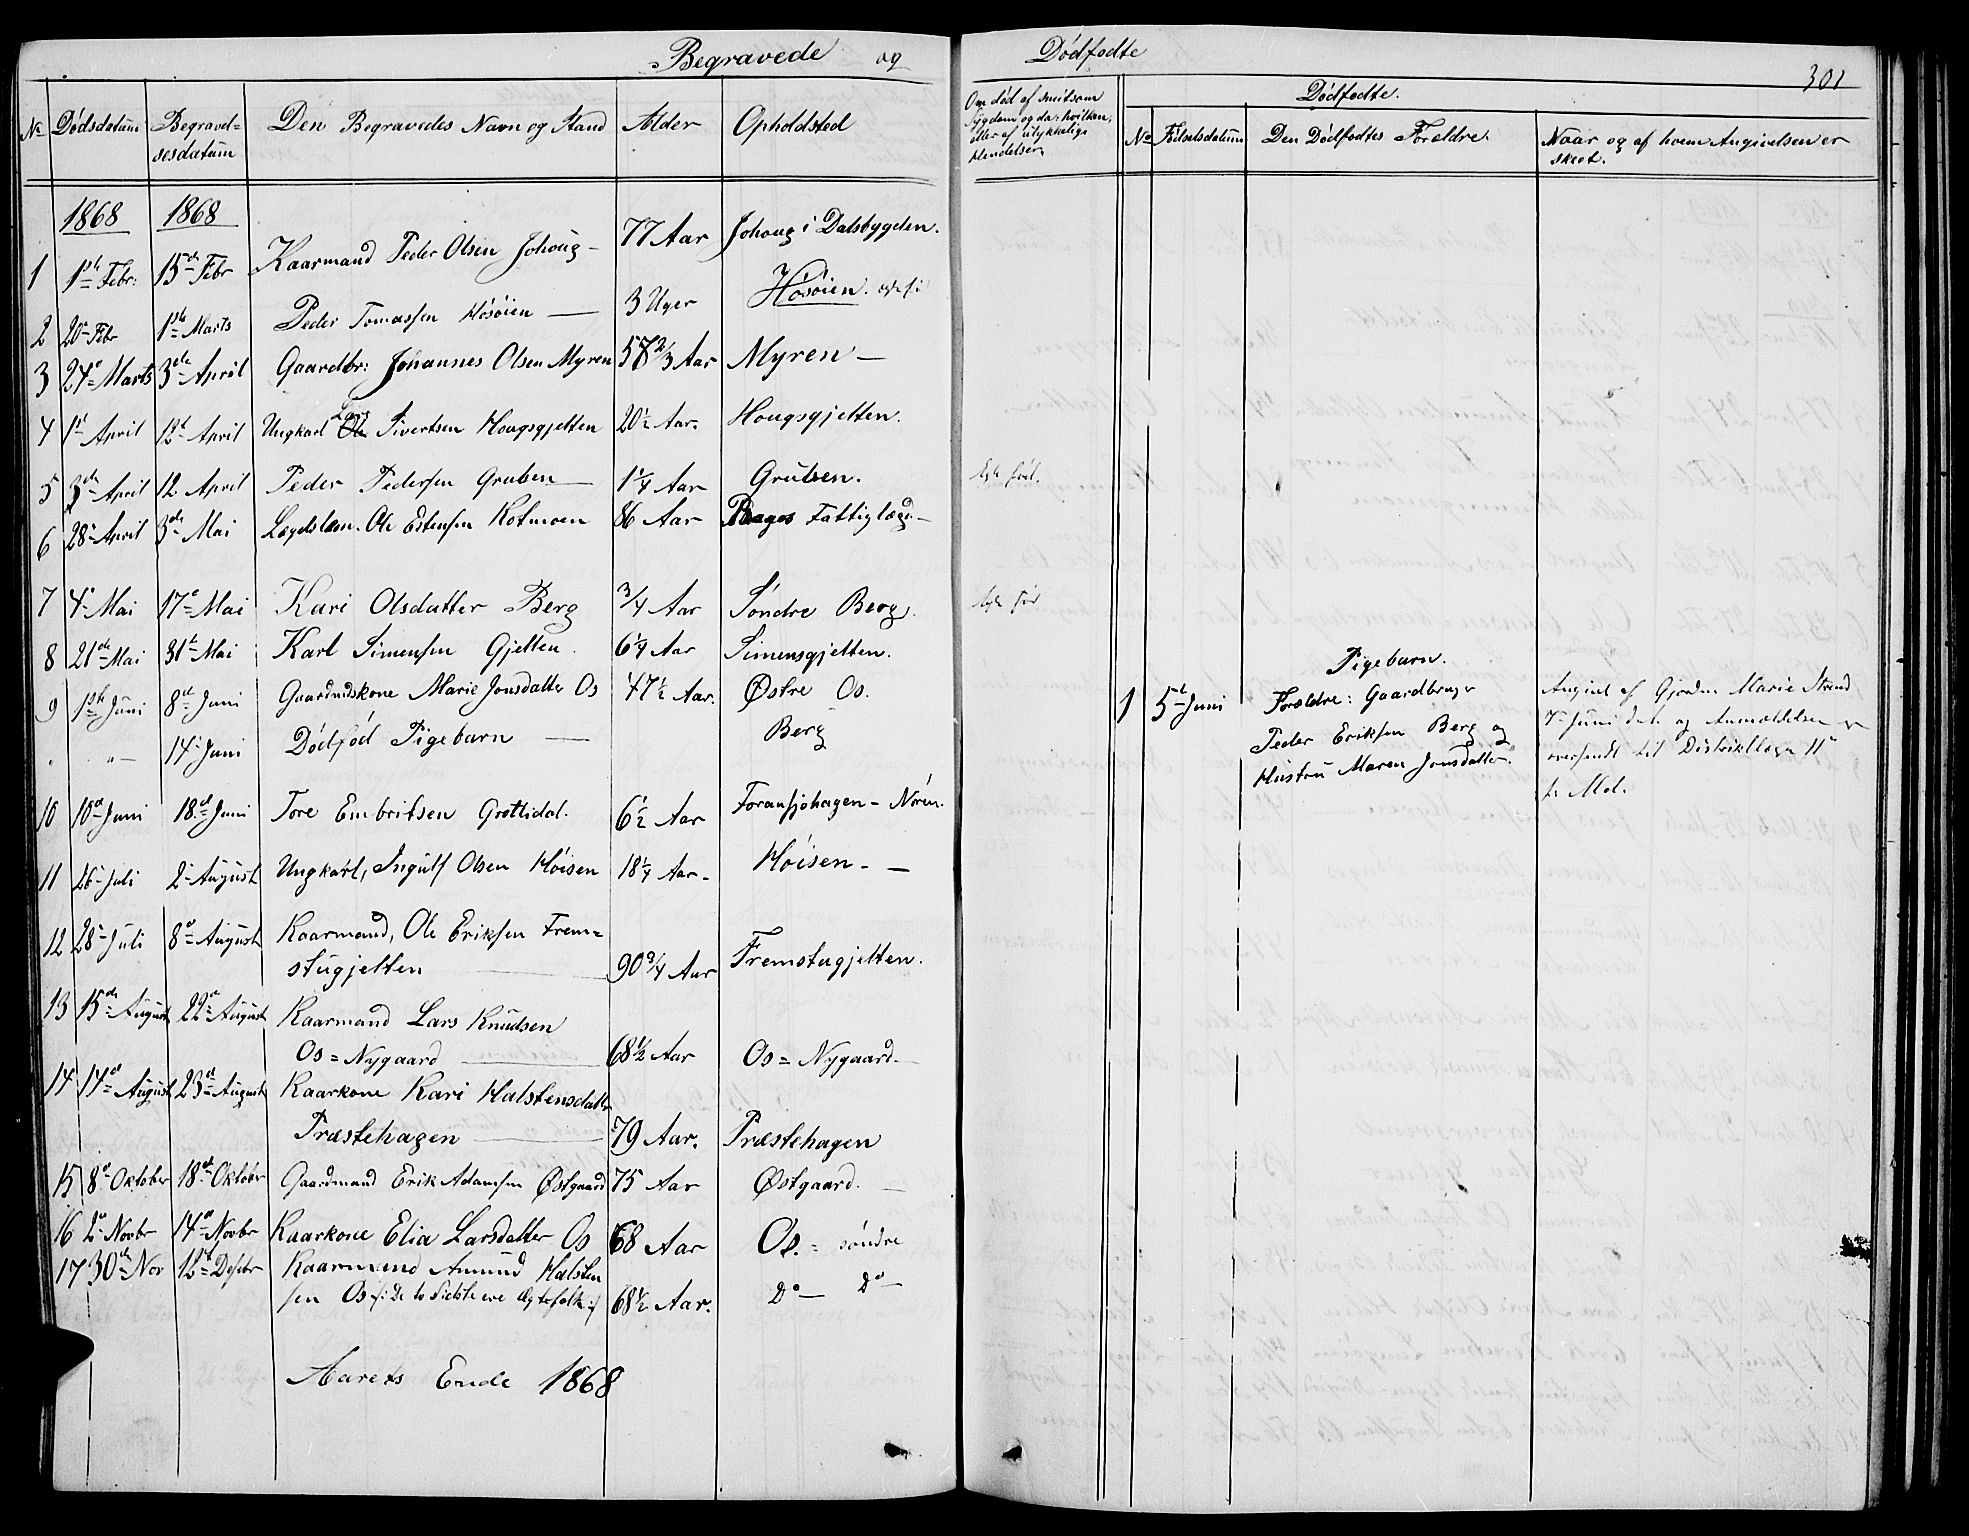 Begravede og Dødfødte
301
No Dødsdatum Begravel= Den Begravedes Navn og Stand Alder Opholdsted
sesdatum
Om død af smitsom
Sygdom og da hvilken,
eller af ulykkelige
Hændelser.
Dødfødte.
No Fødselsdatum Den Dødfødtes Forældre. Naar og af hvem Angivelsen er
skeet.
1868 1868
1 1ste Febr: 15de Febr Kaarmand Peder Olsen Johoug - 77 Aar Johoug i Dalsbygden.
2 20 Febr 1ste Marts Peder Tomassen Hosøien — 3 Uger Hosøien.
3 24 Marts 3de April Gaardbr: Johannes Olsen Myren 57 2/3 Aar Myren —
4 1st April 12t April Ungkarl Ole Lars Sivertsen Hougsgjelten 20½ Aar. Hougsgjelten.
5 3de April 12 April Peder Pedersen Gruben — 1¼ Aar Gruben.
6 28 April 3de Mai Lægdslem. Ole Estensen Kotmoen 86 Aar Fattiglægd. —
7 4 Mai 17 Mai Kari Olsdatter Berg ¾ Aar Søndre Berg.
8 21de Mai 31te Mai Karl Simensen Gjelten. 6¼ Aar Simensgjelten.
9 1ste Juni 8de Juni Gaardmdskone Marie Jonsdatter Os 47½ Aar. Østre Os.
. " — 14 Juni Dødfød Pigebarn — Berg
10 10de Juni 18de Juni Tore Embritsen Grøttidal. 6½ Aar Foransjohagen - Nören.
11 26 Juli 2 August Ungkarl, Ingulf Olsen Høisen 18¼ Aar - Høisen - —
12 28 Juli 8de August Kaarmand, Ole Eriksen Frem=
stugjelten 90¾ Aar Fremstugjelten.
13 15de August 22de August Kaarmand Lars Knudsen
Os = Nygaard — 68½ Aar Os = Nygaard. —
14 14de August 23de August Kaarkone Kari Halstensdatter
Præstehagen — 79 Aar. Præstehagen
15 8de Oktober 18de Oktober Gaardmand Erik Adamsen Østgaard 75 Aar Østgaard. —
16 2 Novbr 14de Novbr Kaarkone Elia Larsdatter Os 68 Aar Os. = søndre
17 30de Nov 12t Desebr Kaarmand Amund Halsten
sen Os /: De to sidste ere Ægtefolk :/ 68½ Aar. Do — Do —
Aarets Ende 1868
Pigebarn.
1 5t Juni Forældre: Gaardbruger
Peder Eriksen Berg og
Hustru Maren Jonsdatter.
Angivet af Gjordm Marie Strand
7 Juni og Anmeldelsen er
oversendt til Distriktlæge